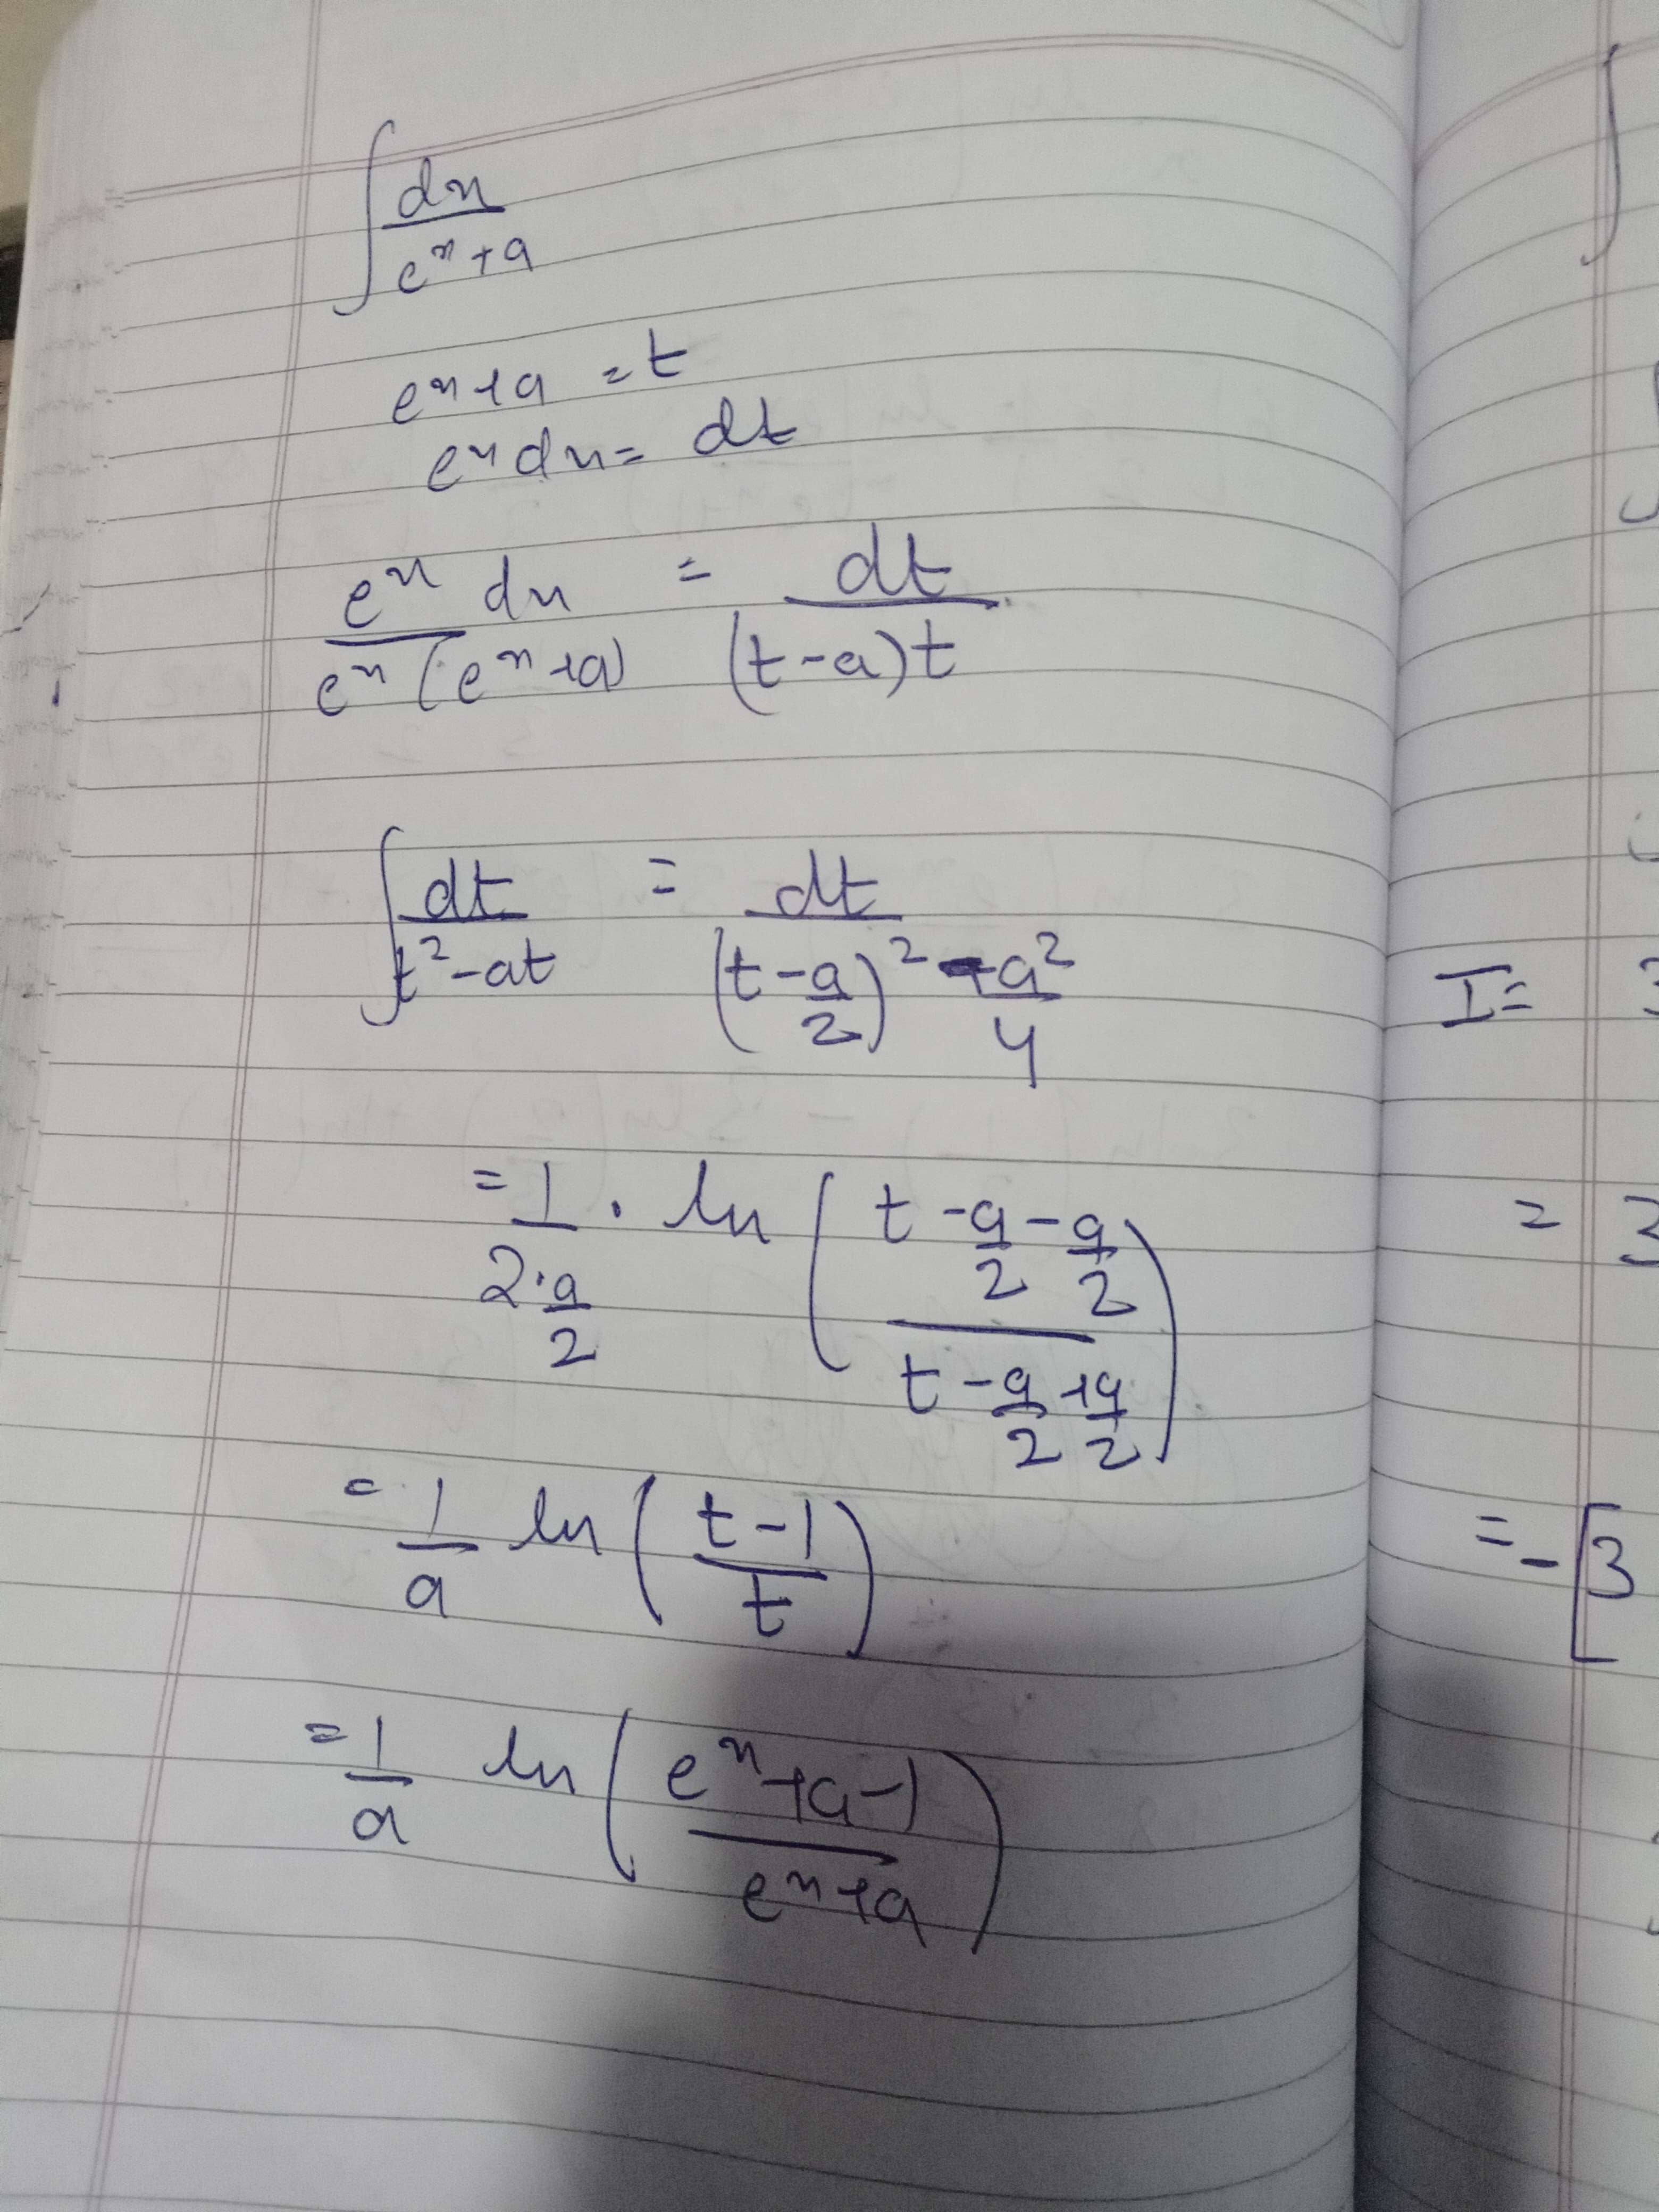 ∫ dx / (e^x + a)
e^x + a = t
e^x dx = dt
e^x dx / e^x (e^x + a) = dt / (t - a)t
∫ dt / (t² - at) = dt / ((t - a/2)² - a²/4)
= 1 / (2·a/2) · ln ((t - a/2 - a/2) / (t - a/2 + a/2))
= 1/a ln ((t - 1) / t)
= 1/a ln ((e^x + a - 1) / (e^x + a))
I =
= 3
= - [3